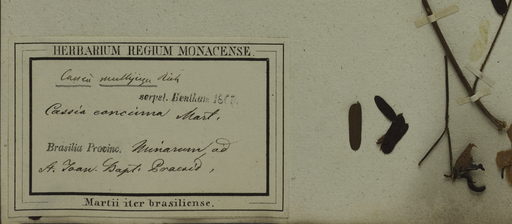 HERBARIUM REGIUM MONACENSE.
Cassia multijuga Rich
scrpst. Bentham 1867.
Cassia concinna Mart.
Brasilia Provinc. Minarum, ad
S. Joan. Bapt.
Martii iter brasiliense.